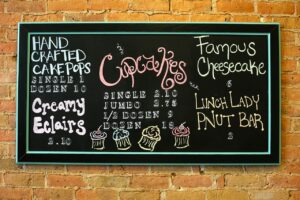 HAND
CRAFTED
CAKE POPS
SINGLE 1
DOZEN 10
Creamy
Eclairs
2.10
Cupcakes
SINGLE 2.10
JUMBO 3.75
1/2 DOZEN 9
DOZEN 18
Famous
Cheesecake
LUNCH LADY
PNUT BAR
2